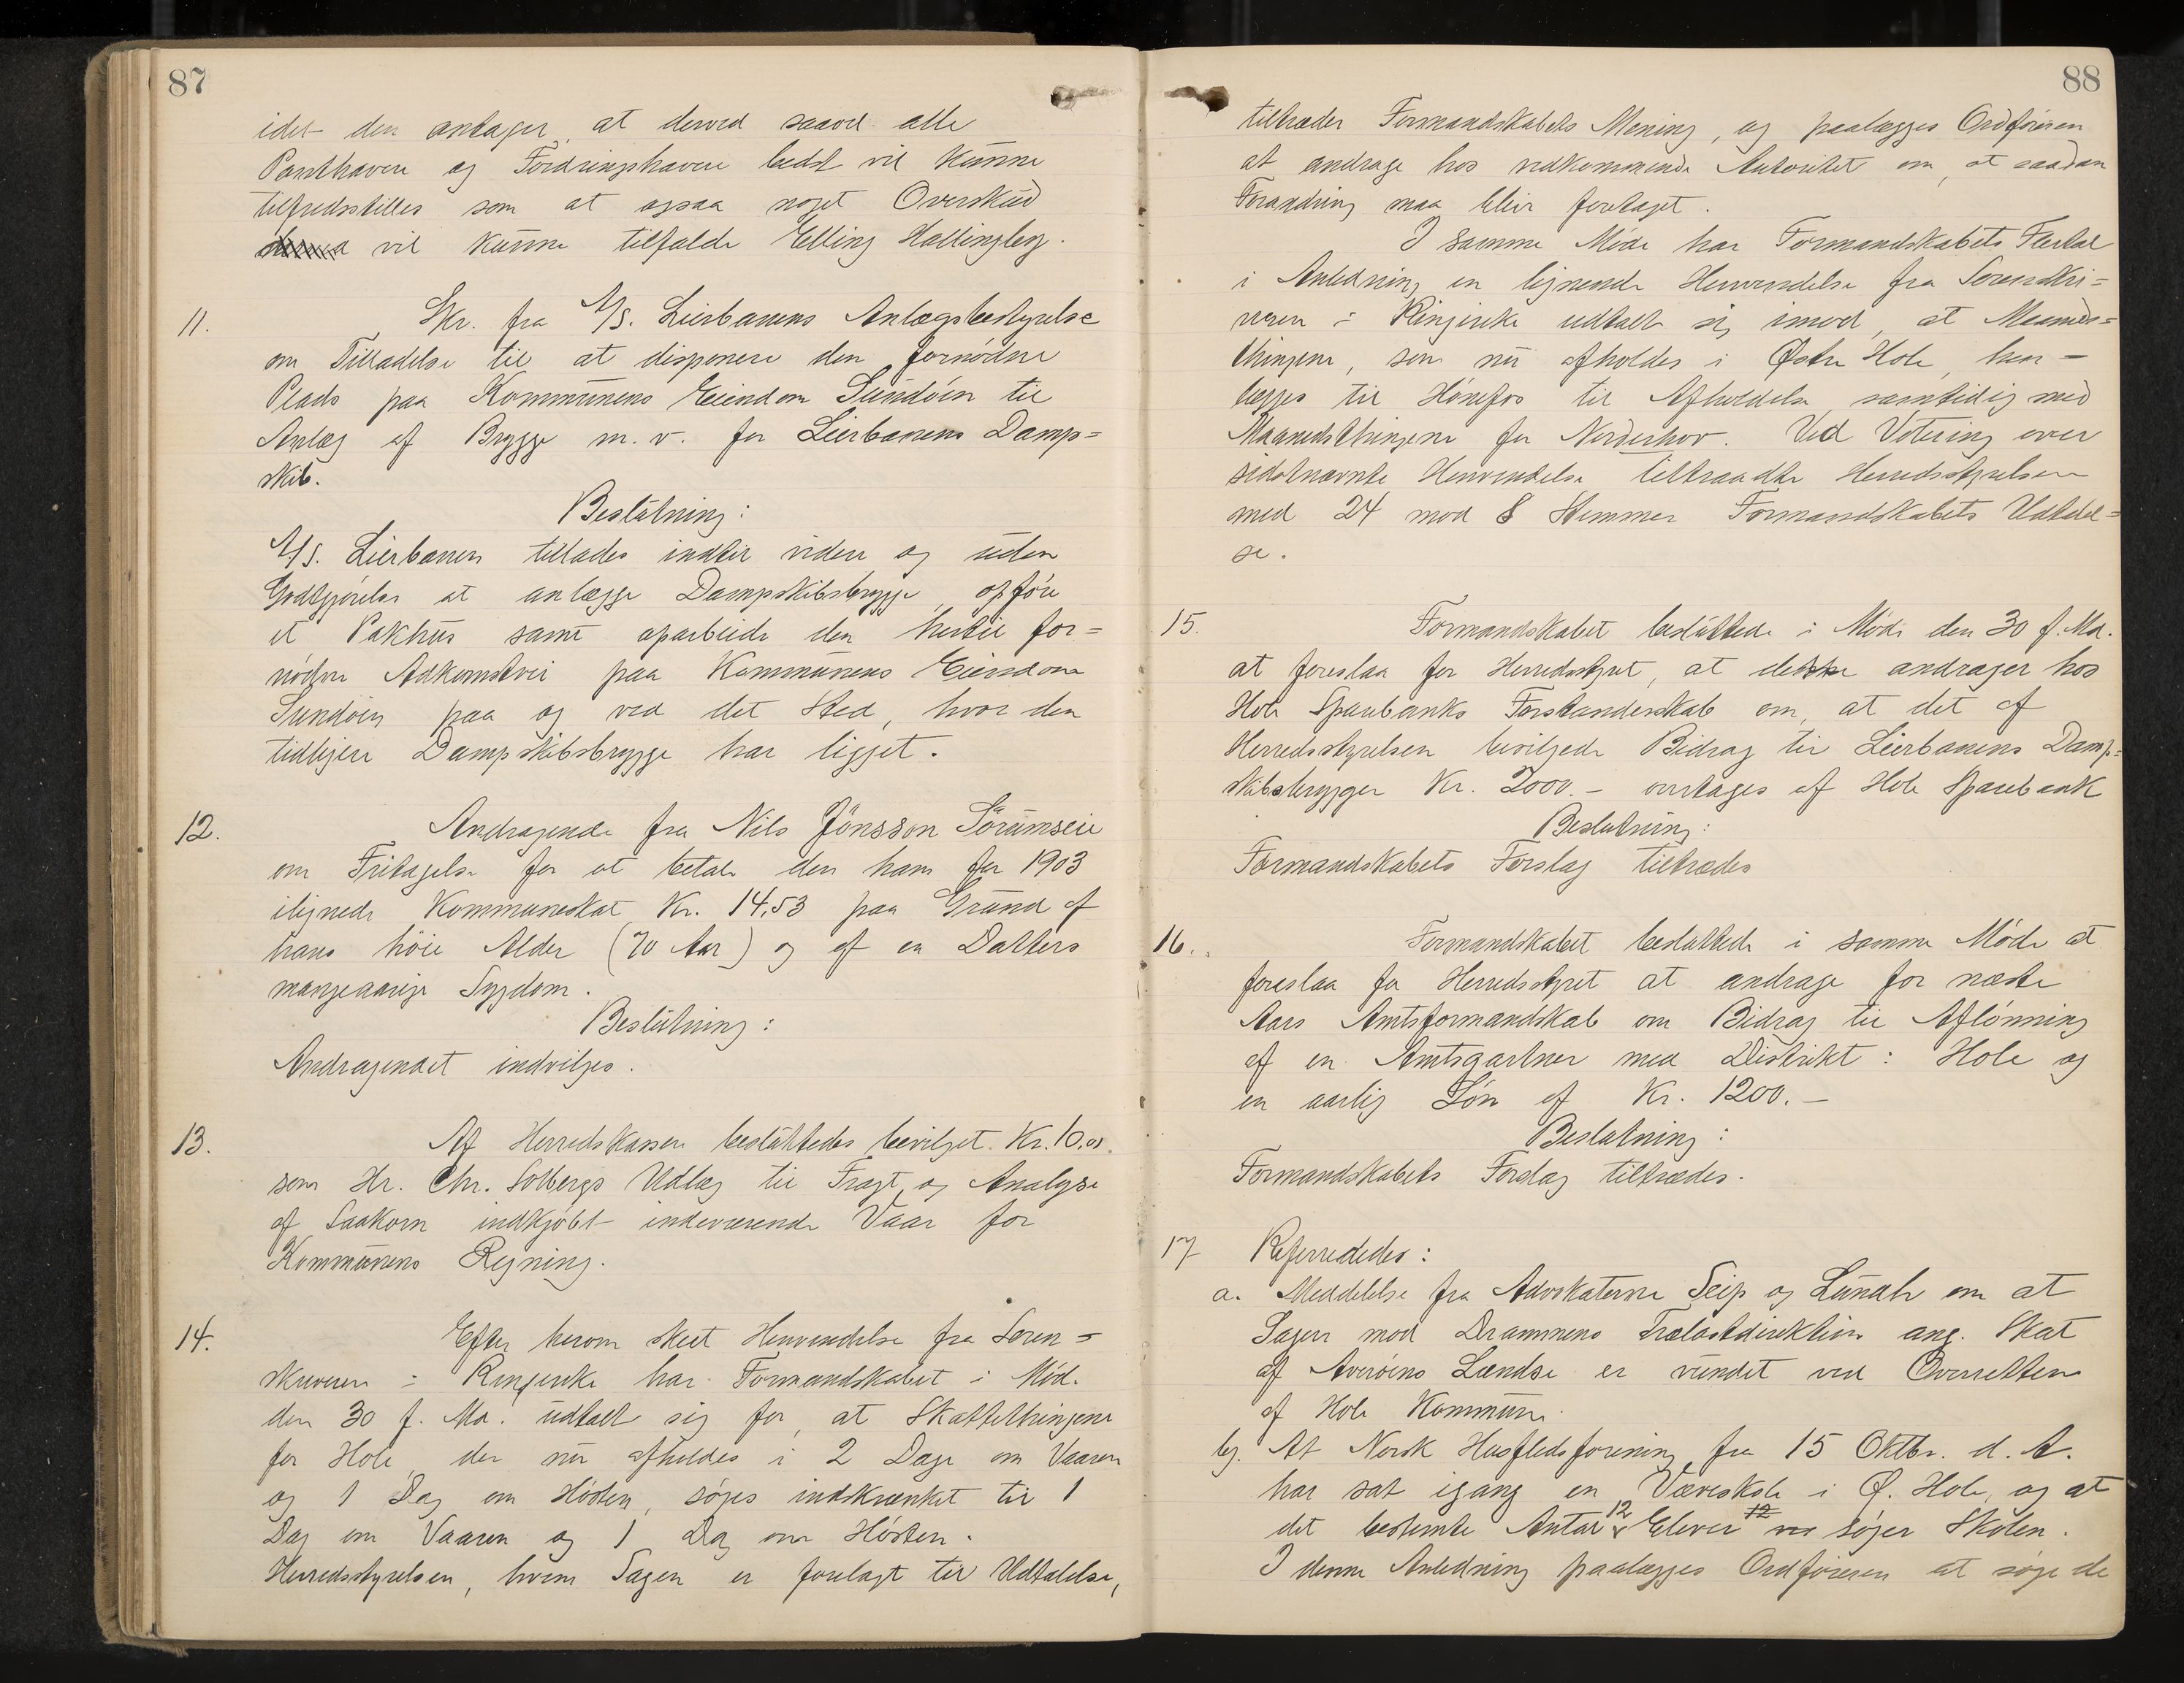 87
idet den antager, at derved saavel alle
Panthavere og Fordringshavere bedst vil kunne
tilfredsstilles som at ogsaa noget Overskud
vil kunne tilfalde Elling Hallingberg.
11. Skr. fra A/S. Lierbanens Anlægsbestyrelse
om Tilladelse til at disponere den fornødne
Plads paa Kommunens Eiendom Sundøen til
Anlæg af Brygge m. v. for Lierbanens Damp=
skib.
Beslutning:
A/S. Lierbanen tillades indtil videre og uden
Godtgjørelse at anlægge Dampskibsbrygge, opføre
et Pakhus samt oparbeide den hertil for=
nødne Adkomstvei paa Kommunens Eiendom
Sundøen paa og ved det Sted, hvor den
tidligere Dampskibsbrygge har ligget.
12. Andragende fra Nils Jonsson Sørumseie
om Fritagelse for at betale den ham for 1903
ilignede Kommuneskat Kr. 14,53 paa Grund af
hans høie Alder (70 Aar) og af en Datters
mangeaarige Sygdom.
Beslutning:
Andragendet indvilges.
13. Af Herredskassen besluttedes bevilget Kr.
som Hr. Chr. Solbergs Udlæg til Fragt og Analyse
af Saakorn indkjøbt indeværende Vaar for
Kommunens Regning.
14. Efter herom skeet Henvendelse fra Soren=
skriveren i Ringerike har Formandskabet i Møde
den 30 f. Md. udtalt sig for, at Skattethingene
for Hole, der nu afholdes i 2 Dage om Vaaren
og 1 Dag om Høsten, søges indskrænket til 1
Dag om Vaaren og 1 Dag om Høsten.
Herredsstyrelsen, hvem Sagen er forelagt til Udtalelse,
88
tiltræder Formandskabets Mening, og paalægges Ordføreren
at andrage hos vedkommende Autoritet om, at saadan
Forandring maa blive foretaget.
I samme Møde har Formandskabets Flertal
i Anledning en lignende Henvendelse fra Sorenskri=
veren i Ringerike udtalt sig imod, at Maaneds=
thingene, som nu afholdes i Østre Hole, hen=
lægges til Hønefos til Afholdelse samtidig med
Maanedsthingene for Norderhov. Ved Votering over
sidstnævnte Henvendelse tiltraadte Herredsstyrelsen
med 24 mod 8 Stemmer Formandskabets Udtalel=
se.
15. Formandskabet besluttede i Møde den 30 f. Md.
at foreslaa for Herredsstyret, at dette andrager hos
Hole Sparebanks Forstanderskab om, at det af
Herredsstyrelsen bevilgede Bidrag til Lierbanens Damp=
skibsbrygger Kr. 2000.- overtages af Hole Sparebank
Beslutning:
Formandskabets Forslag tiltrædes
16. Formandskabet besluttede i samme Møde at
foreslaa for Herredsstyret at andrage for næste
Aars Amtsformandskab om Bidrag til Aflønning
af en Amtsgartner med Distrikt: Hole og
en aarlig Løn af Kr. 1200.-
Beslutning:
Formandskabets Forslag tiltrædes.
17 Refereredes:
a. Meddelelse fra Advokaterne Seip og Lundh om at
Sagen mod Drammens Trælastdirektion ang. Skat
af Averøens Lændse er vundet ved Overretten
af Hole Kommune.
b. At Norsk Husflidsforening fra 15 Oktbr. d. A.
har sat igang en Væveskole i Ø. Hole, og at
det bestemte Antal 12 Elever 12 søger Skolen.
I denne Anledning paalægges Ordføreren at søge de